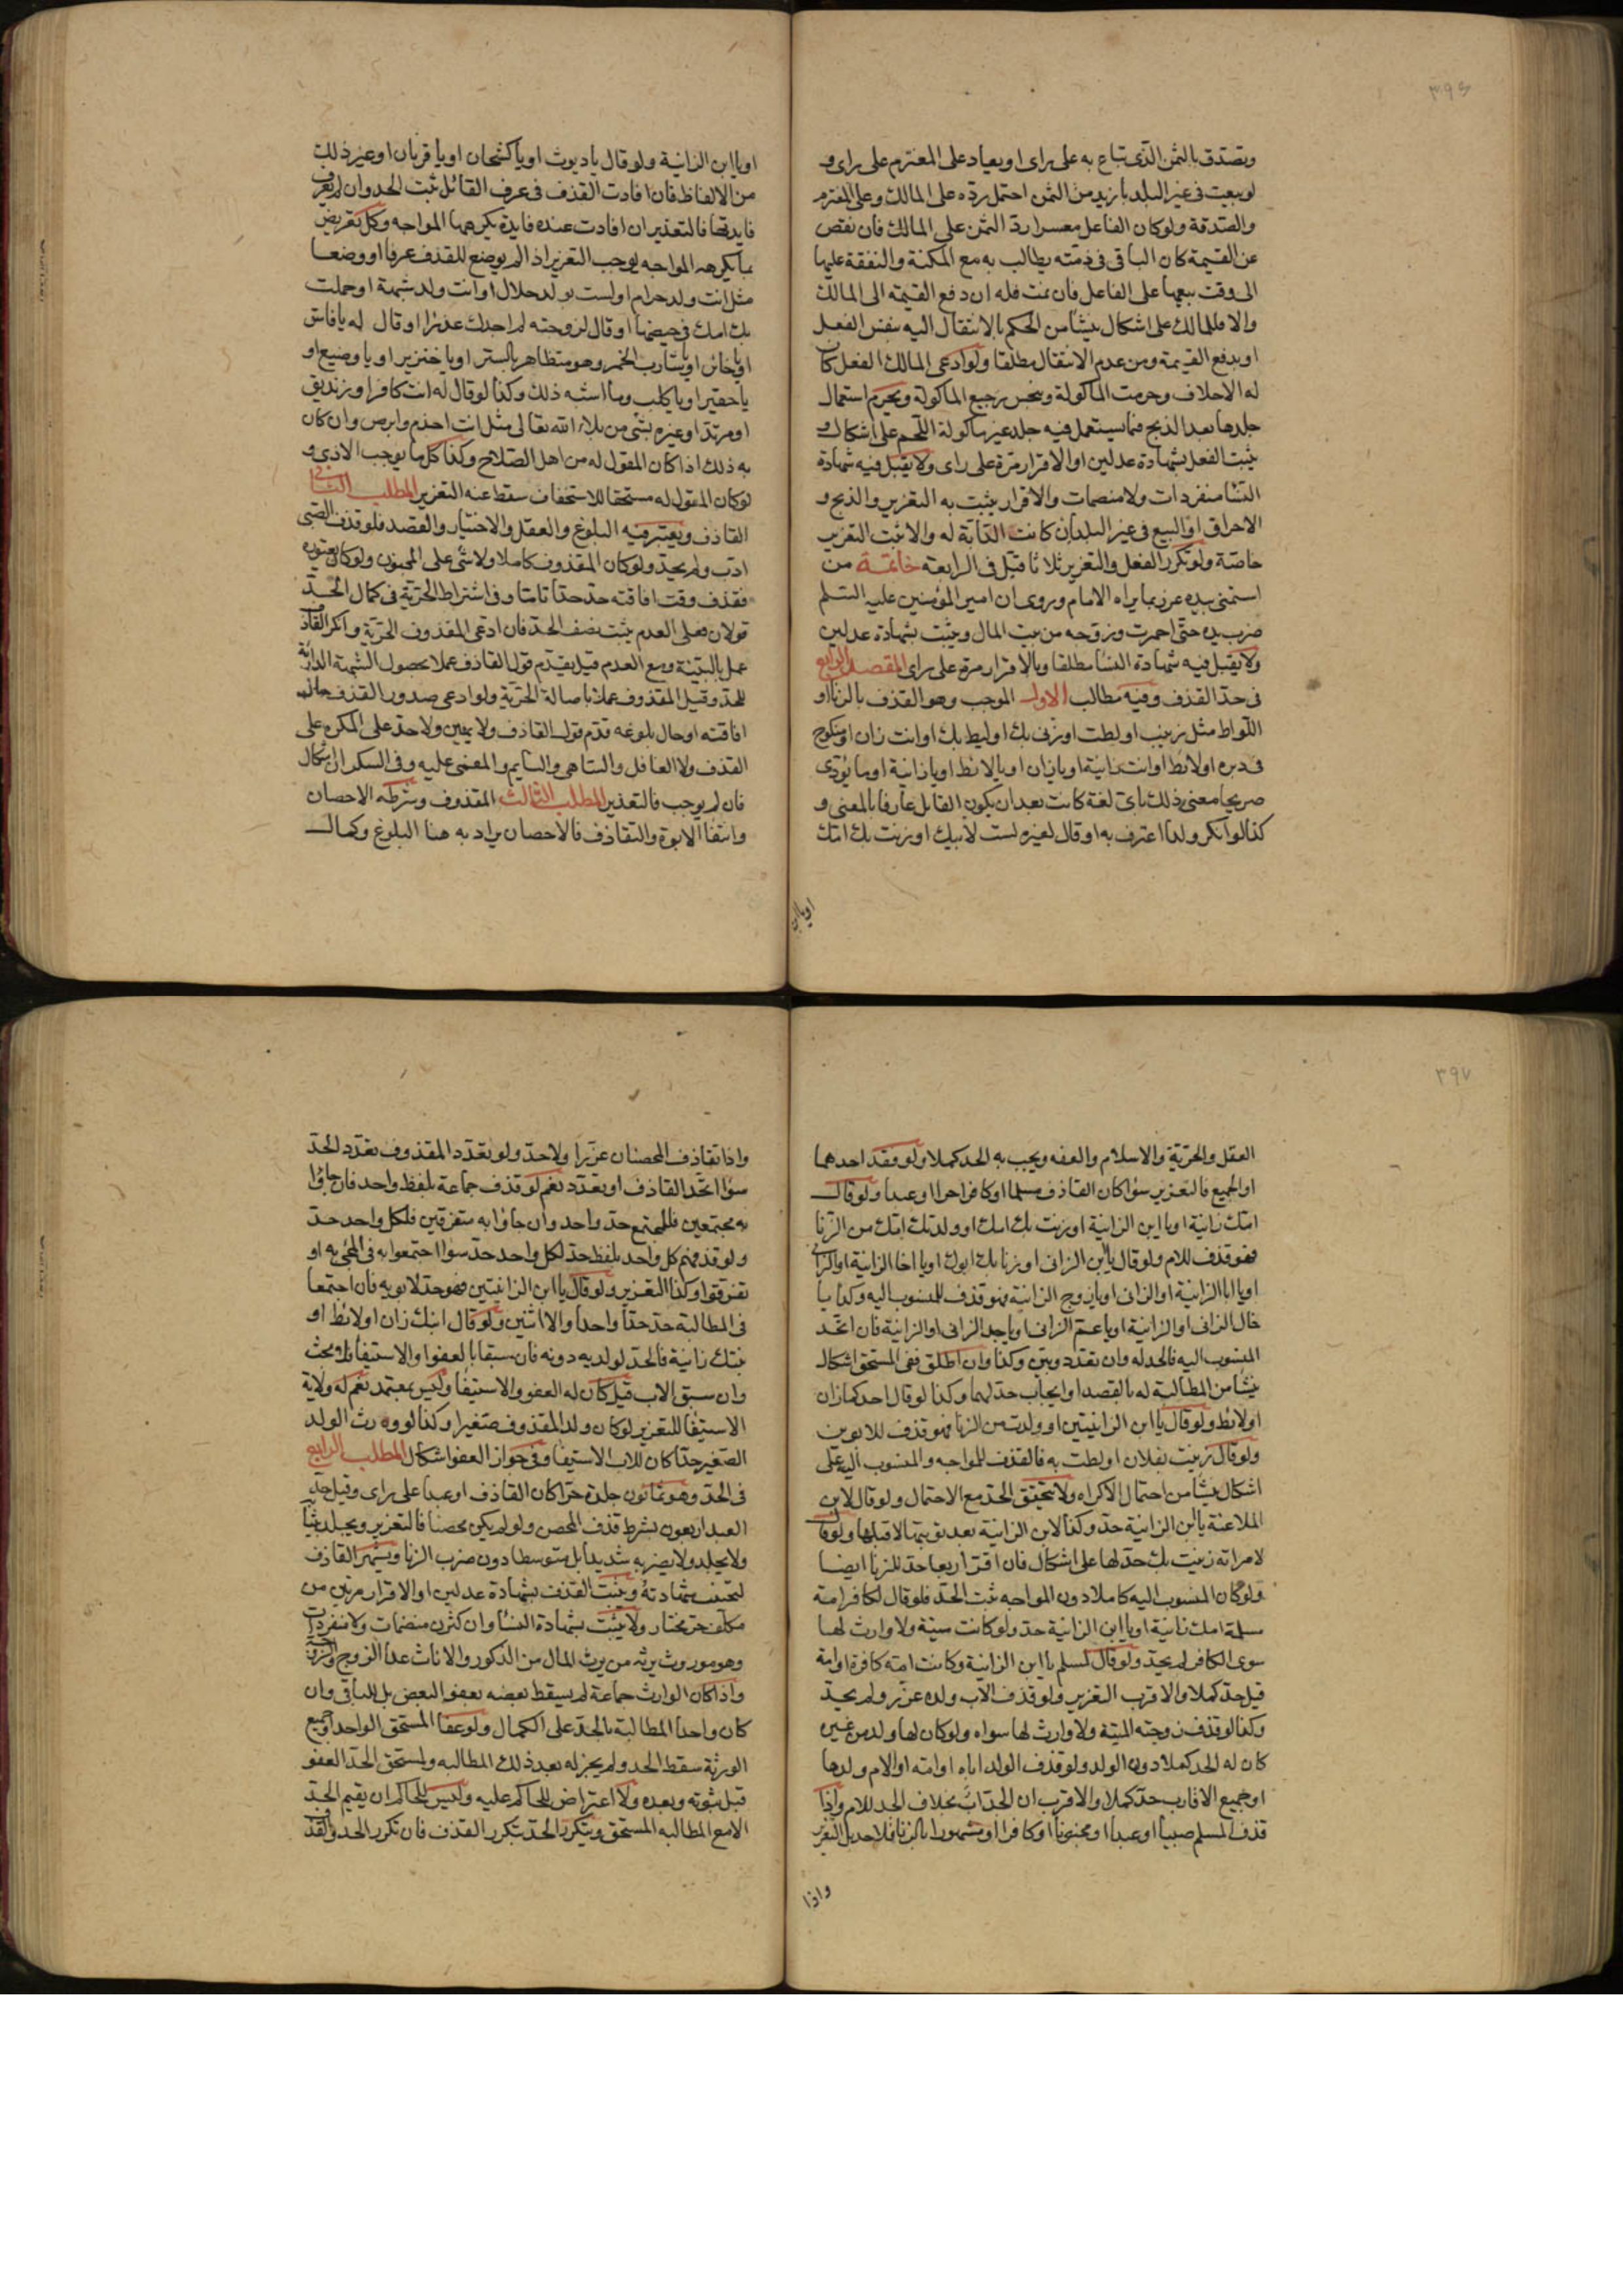 ٣٩٦
ويتصدق بالثمن الذي تباع به على راى او يعاد على المغترم على راى و
لو بيعت في غير البلد بازيد من الثمن احتمل رده على المالك وعلى المغترم
والصدقة ولو كان الفاعل معسرا رد الثمن على المالك فان نقص
عن القيمة كان الباقى فى ذمته يطالب به مع المكنة والنفقة عليها
الى وقت بيعها على الفاعل فان نمت فله ان دفع القيمة الى المالك
والا فللمالك على اشكال ينشأ من الحكم بالانتقال اليه بنفس الفعل
او بدفع القيمة ومن عدم الانتقال مطلقا ولو ادعى المالك الفعل كان
له الاحلاف وحرمت الماكولة وينجس رجيع الماكولة ويحرم استعمال
جلدها بعد الذبح فما يستعمل فيه جلد غير ماكولة اللحم على اشكال و
يثبت الفعل بشهادة عدلين او الاقرار مرة على راى ولا يقبل فيه شهادة
النسا منفردات ولا منضمات والاقرار يثبت به التعزير والذبح و
الاحراق او البيع فى غير البلد ان كانت الدابة له والا ثبت التعزير
خاصة ولو تكرر الفعل والتعزير ثلاثا قتل فى الرابعة خاتمة من
استمنى بيده عزر بما يراه الامام وروى ان امير المؤمنين عليه السلم
ضرب يده حتى احمرت وزوجه من بيت المال ويثبت بشهادة عدلين
ولا يقبل فيه شهادة النسا مطلقا وبالاقرار مرة على راى المقصد الرابع
فى حد القذف وفيه مطالب الاول الموجب وهو القذف بالزنا او
اللواط مثل زنيت او لطت او زنى بك او ليط بك او انت زان او منكوح
فى دبره او لائط او انت زانية او يا زان او يا لائط او يا زانية او ما يؤدى
صريحا معنى ذلك باى لغة كانت بعد ان يكون القايل عارفا بالمعنى و
كذا لو انكر ولدا اعترف به او قال لغيره لست لابيك او زنت بك امك
او يا ابن
او يا ابن الزانية ولو قال يا ديوث او يا كشحان او يا قرنان او غير ذلك
من الالفاظ فان افادت القذف فى عرف القائل ثبت الحد وان لم يعرف
فايدتها فالتعذير ان افادت عنده فايدة يكرهها المواجه وكل تعريض
بما يكرهه المواجه يوجب التعزير اذا لم يوضع للقذف عرفا او وضعا
مثل انت ولد حرام او لست بولد حلال او انت ولد شبهة او حملت
بك امك فى حيضها او قال لزوجته لم اجدك عذرا او قال له يا فاسق
او يا خائن او يا شارب الخمر وهو متظاهر بالستر او يا خنزير او يا وضيع او
يا حقير او يا كلب وما اشبه ذلك وكذا لو قال له انت كافر او زنديق
او مرتد او عيره بشى من بلاء الله تعالى مثل انت اجذم وابرص وان كان
به ذلك اذا كان المقول له من اهل الصلاح وكذا كل ما يوجب الاذى و
لو كان المقول له مستحقا للاستخفاف سقط عنه التعزير المطلب الثانى
القاذف ويعتبر فيه البلوغ والعقل والاختيار والقصد فلو قذف الصبى
ادب ولم يحد ولو كان المقذوف كاملا ولا شى على المجنون ولو كان يعتوره
فقذف وقت افاقته حد حدا تاما وفى اشتراط الحرية فى كمال الحد
قولان فعلى العدم يثبت نصف الحد فان ادعى المقذوف الحرية وانكر القاذف
عمل بالبينة ومع العدم قيل يقدم قول القاذف عملا بحصول الشبهة الدارئة
للحد وقيل المقذوف عملا باصالة الحرية ولو ادعى صدور القذف حال
افاقته او حال بلوغه قدم قول القاذف ولا يمين ولا حد على المكره على
القذف ولا الغافل والساهى والنايم والمغمى عليه وفى السكران اشكال
فان لم يوجب فالتعذير المطلب الثالث المقذوف وشرطه الاحصان
وانتفا الابوة والتقاذف فالاحصان يراد به هنا البلوغ وكمال
٣٩٧
العقل والحرية والاسلام والعفه ويجب به الحد كملا ولو فقد احدهما
او الجميع فالتعزير سوا كان القاذف مسلما او كافرا حرا او عبدا ولو قال
امك زانية او يا ابن الزانية او زنت بك امك او ولدتك امك من الزنا
فهو قذف للام ولو قال يا ابن الزانى او زنا بك ابوك او يا اخا الزانية او الزانى
او يا ابا الزانية او الزانى او يا زوج الزانية فهو قذف للمنسوب اليه وكذا يا
خال الزانى او الزانية او يا عم الزانى او يا جد الزانى او الزانية فان اتحد
المنسوب اليه فالحد له وان تعدد وبين وكذا وان اطلق ففى المستحق اشكال
ينشا من المطالبة له بالقصد او ايجاب حد لهما وكذا لو قال احدكما زان
او لائط ولو قال يا ابن الزانيين او ولدت من الزنا فهو قذف للابوين
ولو قال زنيت بفلان او لطت به فالقذف للمواجه والمنسوب اليه على
اشكال ينشأ من احتمال الاكراه ولا يتحقق الحد مع الاحتمال ولو قال لابن
الملاعنة يا ابن الزانية حد وكذا لابن الزانية بعد توبتها لا قبلها ولو قال
لامراته زنيت بك حد لها على اشكال فان اقر اربعا حد للزنا ايضا
ولو كان المنسوب اليه كاملا دون المواجه ثبت الحد فلو قال لكافر امه
مسلمة امك زانية او يا ابن الزانية حد ولو كانت ميتة ولا وارث لها
سوى الكافر لم يحد ولو قال لمسلم يا ابن الزانية وكانت امه كافرة او امة
قيل حد كملا والاقرب التعزير ولو قذف الاب ولده عزر ولم يحد
وكذا لو قذف زوجته الميتة ولا وارث لها سواه ولو كان لها ولد من غيره
كان له الحد كملا دون الولد ولو قذف الولد اباه او امه او الام ولدها
او جميع الاقارب حد كملا والاقرب ان الجد اب بخلاف الجد للام واذا
قذف المسلم صبيا او عبدا او مجنونا او كافرا او مشهورا بالزنا فلا حد بل التعزير
واذا
واذا تقاذف المحصنان عزرا ولا حد ولو تعدد المقذوف تعدد الحد
سوا اتحد القاذف او تعدد نعم لو قذف جماعة بلفظ واحد فان جاؤا
به مجتمعين فللجميع حد واحد وان جاؤا به متفرقين فلكل واحد حد
ولو قذفهم كل واحد بلفظ حد لكل واحد حد سوا اجتمعوا به فى المجئ به او
تفرقوا وكذا التعزير ولو قال يا ابن الزانيين فهو حد لابويه فان اجتمعا
فى المطالبة حد حدا واحدا والا اثنين ولو قال ابنك زان او لائط او
بنتك زانية فالحد لولديه دونه فان سبقا بالعفو او الاستيفا فلا بحث
وان سبق الاب قيل كان له العفو والاستيفا وليس بمعتمد نعم له ولاية
الاستيفا للتعزير لو كان ولد المقذوف صغيرا وكذا لو ورث الولد
الصغير حدا كان للاب الاستيفا وفى جواز العفو اشكال المطلب الرابع
فى الحد وهو ثمانون جلدة حرا كان القاذف او عبدا على راى وقيل حد
العبد اربعون بشرط قذف المحصن ولو لم يكن محصنا فالتعزير ويجلد بثيابه
ولا يجلد ولا يضربه شديدا بل متوسطا دون ضرب الزنا ويشهر القاذف
لتجتنب شهادته ويثبت القذف بشهادة عدلين او الاقرار مرتين من
مكلف حر مختار ولا يثبت بشهادة النسا وان كثرن منضمات ولا منفردات
وهو موروث يرثه من يرث المال من الذكور والاناث عدا الزوج والزوجة
واذا كان الوارث جماعة لم يسقط بعضه بعفو البعض بل للباقى وان
كان واحدا المطالبة بالحد على الكمال ولو عفا المستحق الواحد او جميع
الورثة سقط الحد ولم يجز له بعد ذلك المطالبه ولمستحق الحد العفو
قبل ثبوته وبعده ولا اعتراض للحاكم عليه وليس للحاكم ان يقيم الحد
الا مع المطالبه المستحق ويتكرر الحد بتكرر القذف فان تكرر الحد والقذف